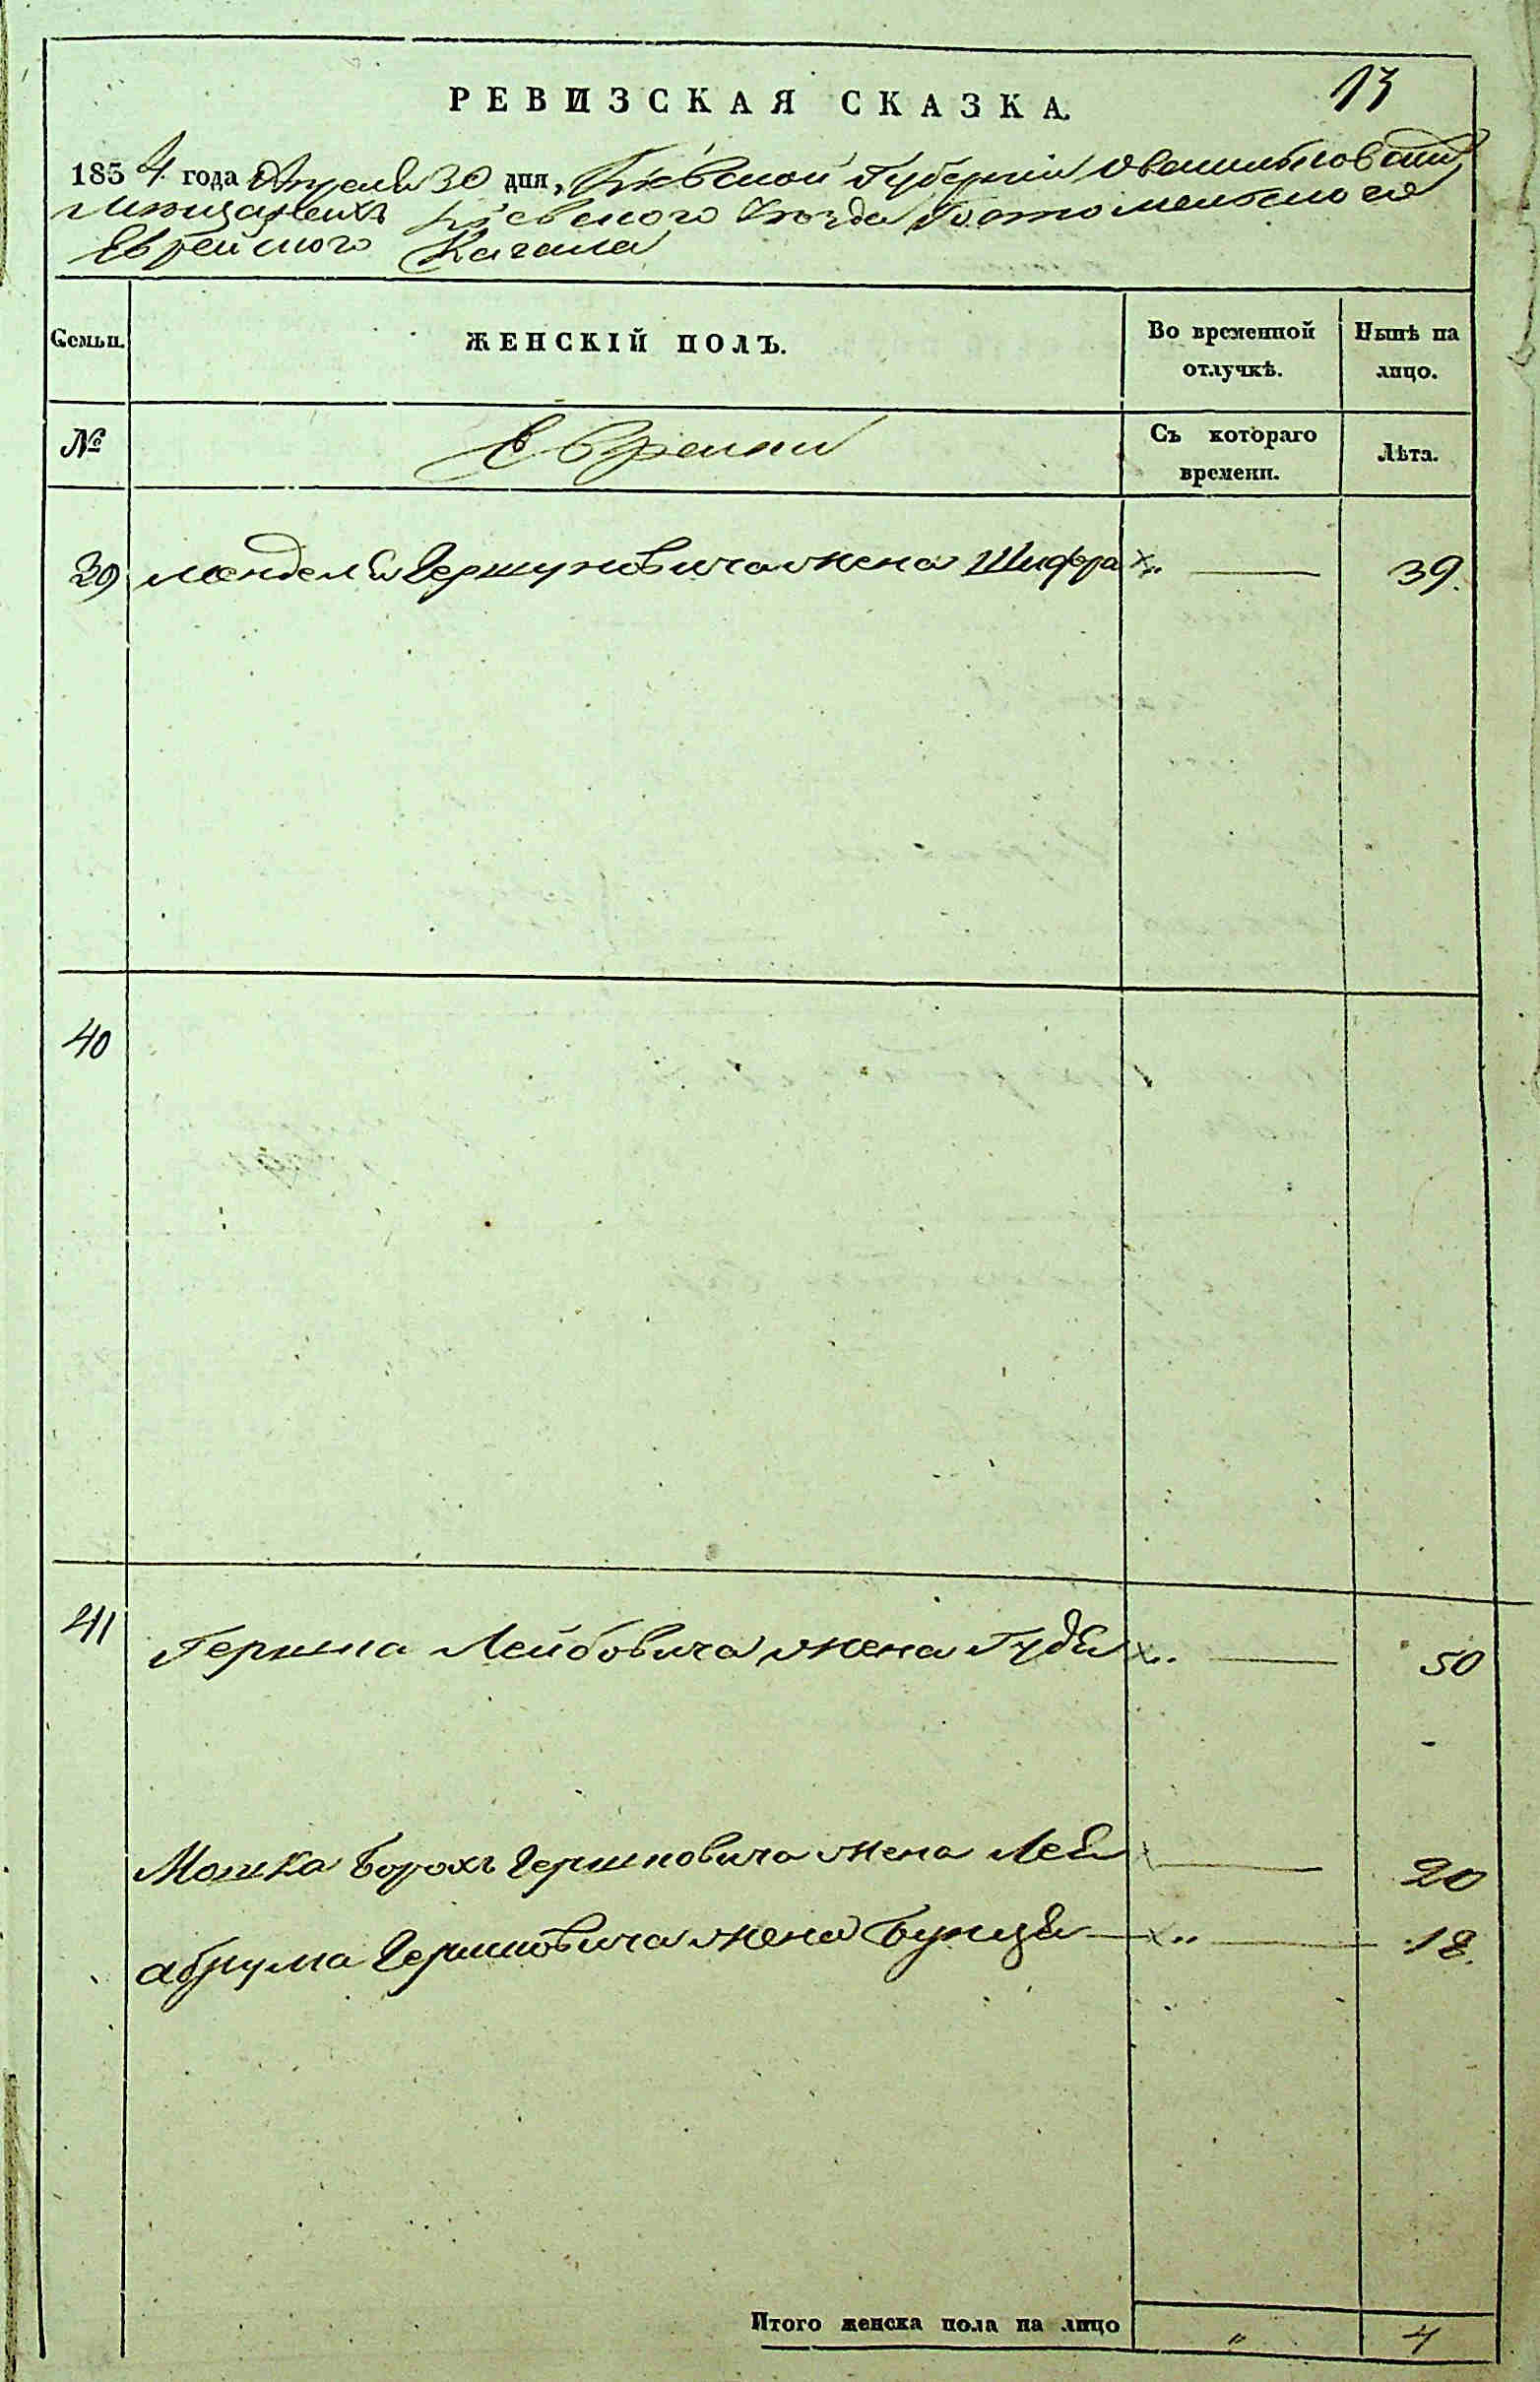 13
РЕВИЗСКАЯ СКАЗКА.
1854 года Апреля 30 дня, Кіевской Губерніи
мѣщанехъ Кіевского Уѣзда Гостомельского
Еврейского Кагала
Семьи. ЖЕНСКІЙ ПОЛЪ. Во временной отлучкѣ. Нынѣ на лицо.
№ Еврейки Съ котораго времени. Лѣта.
39 Менделя Гершуновича жена Шифра " — 39.
40
41 Гершка Лейбовича жена Гудя " — 50
Мошка Борохъ Гершковича жена Лея — 20
Абрума Гершковича жена Бунця " — 18.
Итого женска пола на лицо " 4